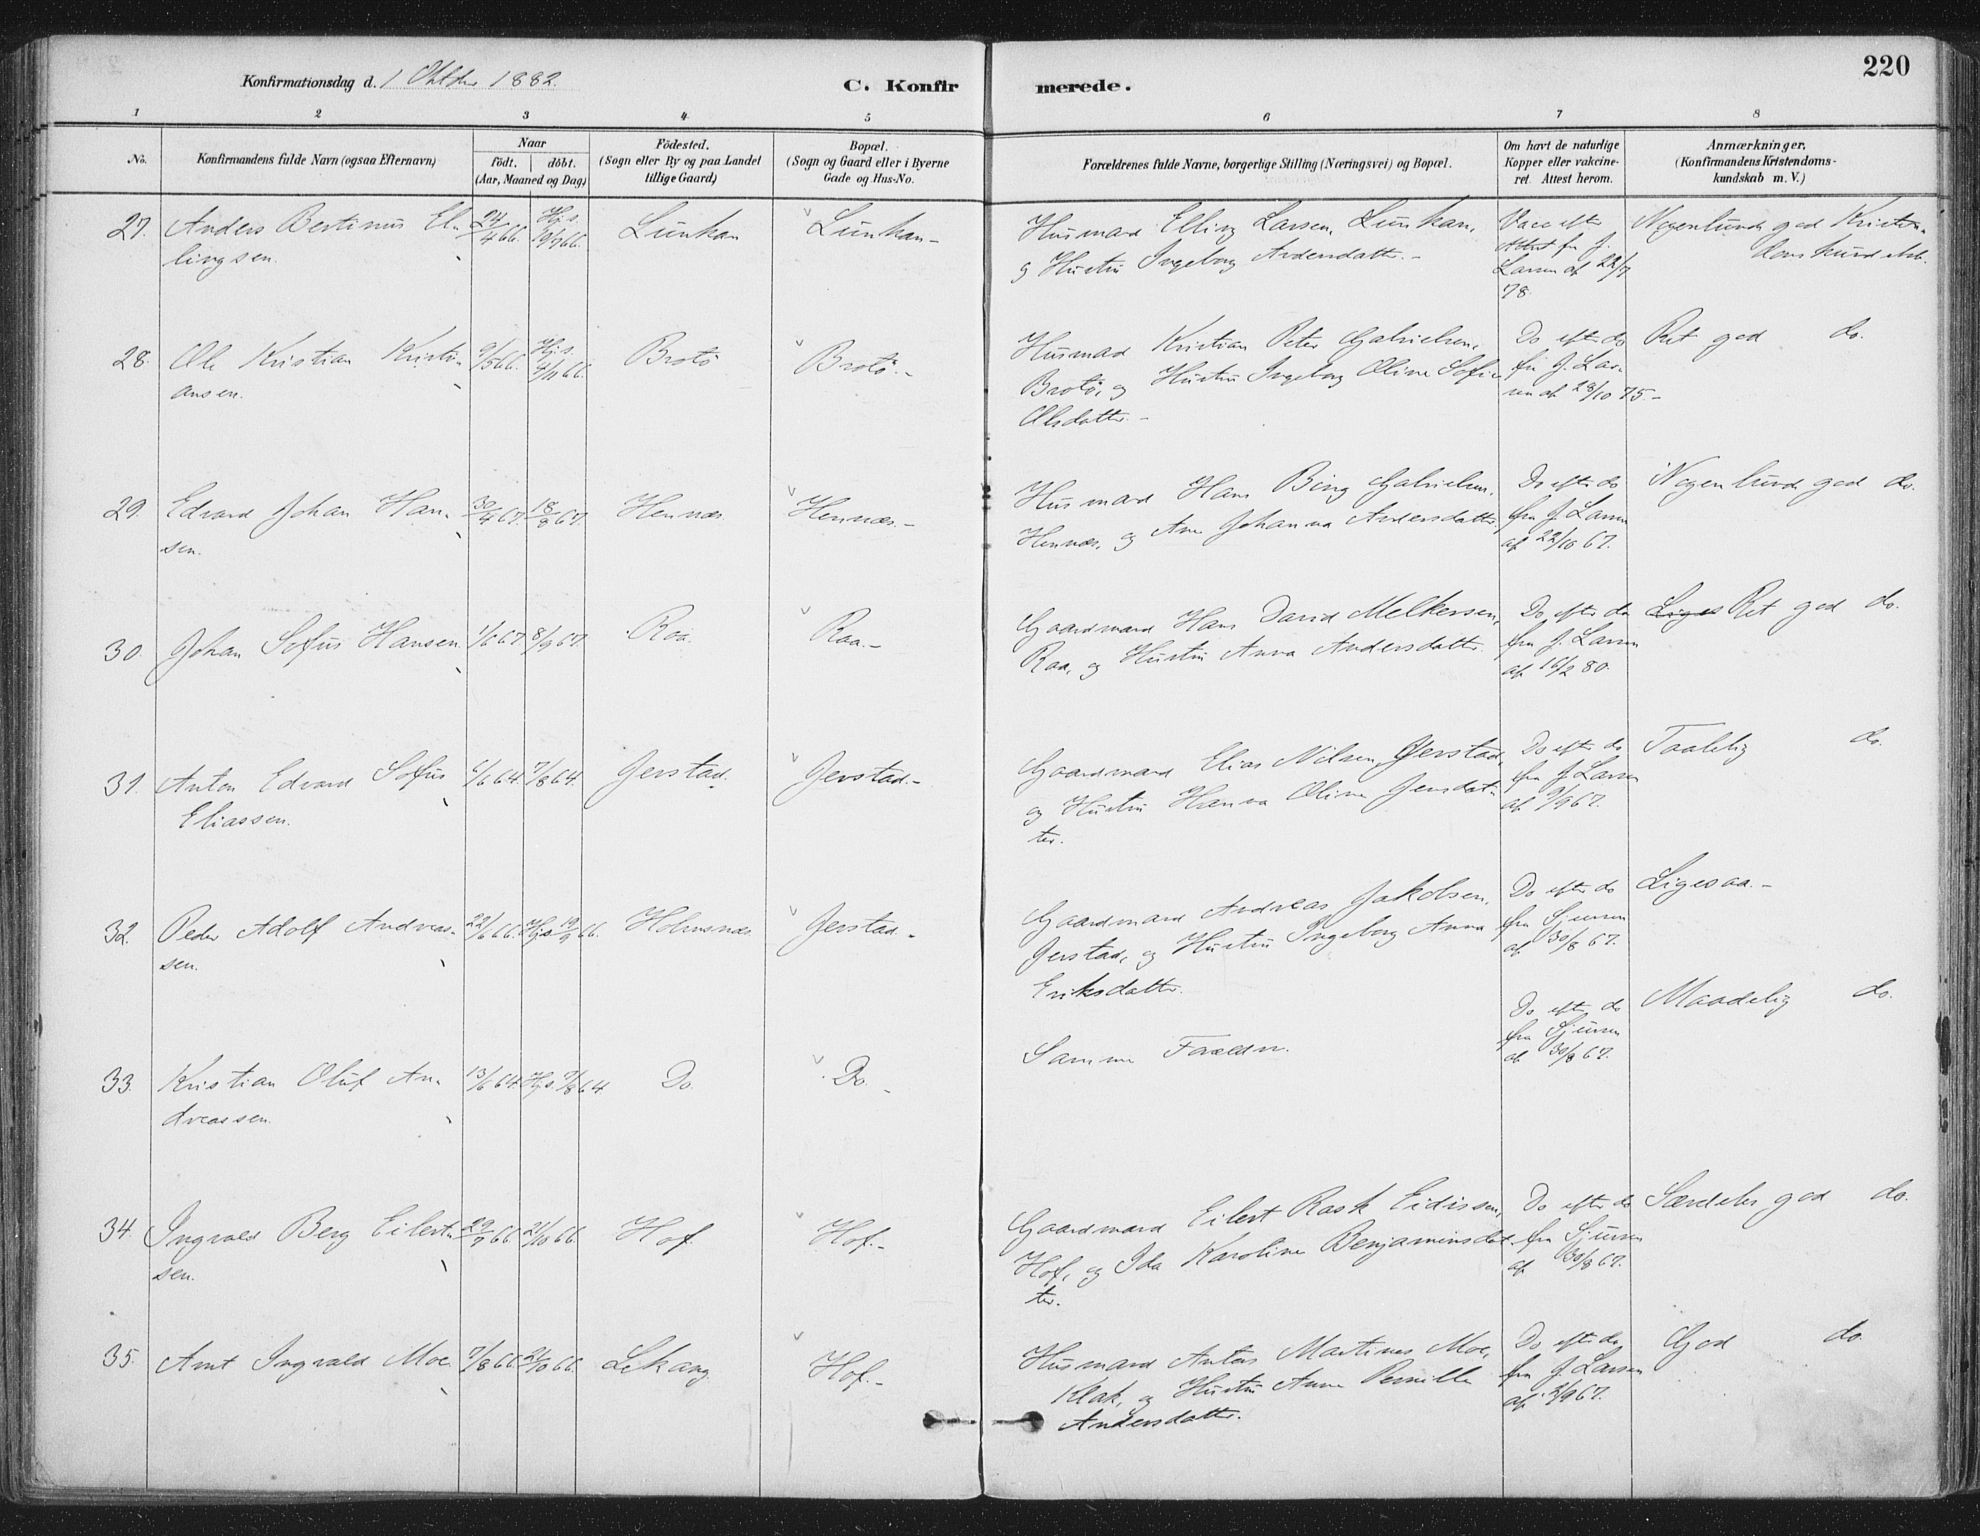 220
Konfirmationsdag d. 1 Oktbr 1882.
C. Konfirmerede.
1 2 3 4 5 6 7 8
No.
Konfirmandens fulde Navn (ogsaa Efternavn)
Naar
födt. döbt.
(Aar, Maaned og Dag)
Födested.
(Sogn eller By og paa Landet
tillige Gaard)
Bopæl.
(Sogn og Gaard eller i Byerne
Gade og Hus-No.
Forældrenes fulde Navne, borgerlige Stilling (Næringsvei) og Bopæl.
Om havt de naturlige
Kopper eller vakcine-
ret. Attest herom.
Anmærkninger,
(Konfirmandens Kristendoms-
kundskab m. V.)
27. Anders Bertinus El-
lingsen.
24/4 66. Hjs. 19/9 66. Lunkan Lunkan-
Husmand Elling Larsen, Lunkan,
og Hustru Ingeborg Andersdatter.-
Vacc efter
Attest fra J.
Larsen af 22/7
78.
Nogenlunde god Kristen-
domskundskab.
28. Ole Kristian Kristi-
ansen.
9/5 66. Hjs. 4/11 66. Brotö Brotö.-
Husmand Kristian Peter Gabrielsen,
Brotö, og Hustru Ingeborg Oline Sofie
Olsdatter.-
Do efter do
fra J. Lar-
sen af 28/10 75.-
Ret god do.
29. Edvard Johan Han-
sen.
30/4 67. 18/8 67. Hennæs Hennæs.-
Husmand Hans Bing Gabrielsen,
Hennæs, og Ane Johanna Andersdatter.
Do efter do
fra J. Larsen
af 22/10 67.
Nogenlunde god do.
30. Johan Sofus Hansen
1/6 67. 8/9 67. Raa. Raa.-
Gaardmand Hans David Melkersen,
Raa, og Hustru Anna Andersdatter.
Do efter do
fra J. Larsen
af 16/2 80.
Ret god do.
31. Anton Edvard Sofus
Eliassen.
6/6 64. 7/8 64. Gerstad. Gerstad.-
Gaardmand Elias Nilsen, Gerstad,
og Hustru Hanna Oline Jensdat-
ter.
Do efter do
fra J. Larsen
af 9/9 67.
Taalelig do.
32. Peder Adolf Andreas-
sen.
22/6 66. Hjs 19/9 66. Holmsnæs Gerstad.-
Gaardmand Andreas Jakobsen,
Gerstad, og Hustru Ingeborg Anna
Eriksdatter.
Do efter do
fra Sjursen
af 30/8 67.
Ligesaa.-
33. Kristian Oluf An-
dreassen.
13/6 64. Hjs. 7/8 64 Do. Do.-
Samme Forældre.
Do efter do
fra Sjursen
af 30/8 67.
Maadelig do.
34. Ingvald Berg Eilert-
sen.
29/7 66. 21/10 66. Hof. Hof.-
Gaardmand Eilert Rask Eidissen,
Hof, og Ida Karoline Benjaminsdat-
ter.
Do efter do
fra Sjursen
af 30/8 67.
Særdeles god do.
35. Amt Ingvald Moe.
7/8 66. 21/10 66. Lekang Hof.-
Husmand Antons Martinus Moe,
Klak, og Hustru Anne Pernille
Andersdatter.
Do efter do
fra J. Larsen
af 2/9 67.
God do.